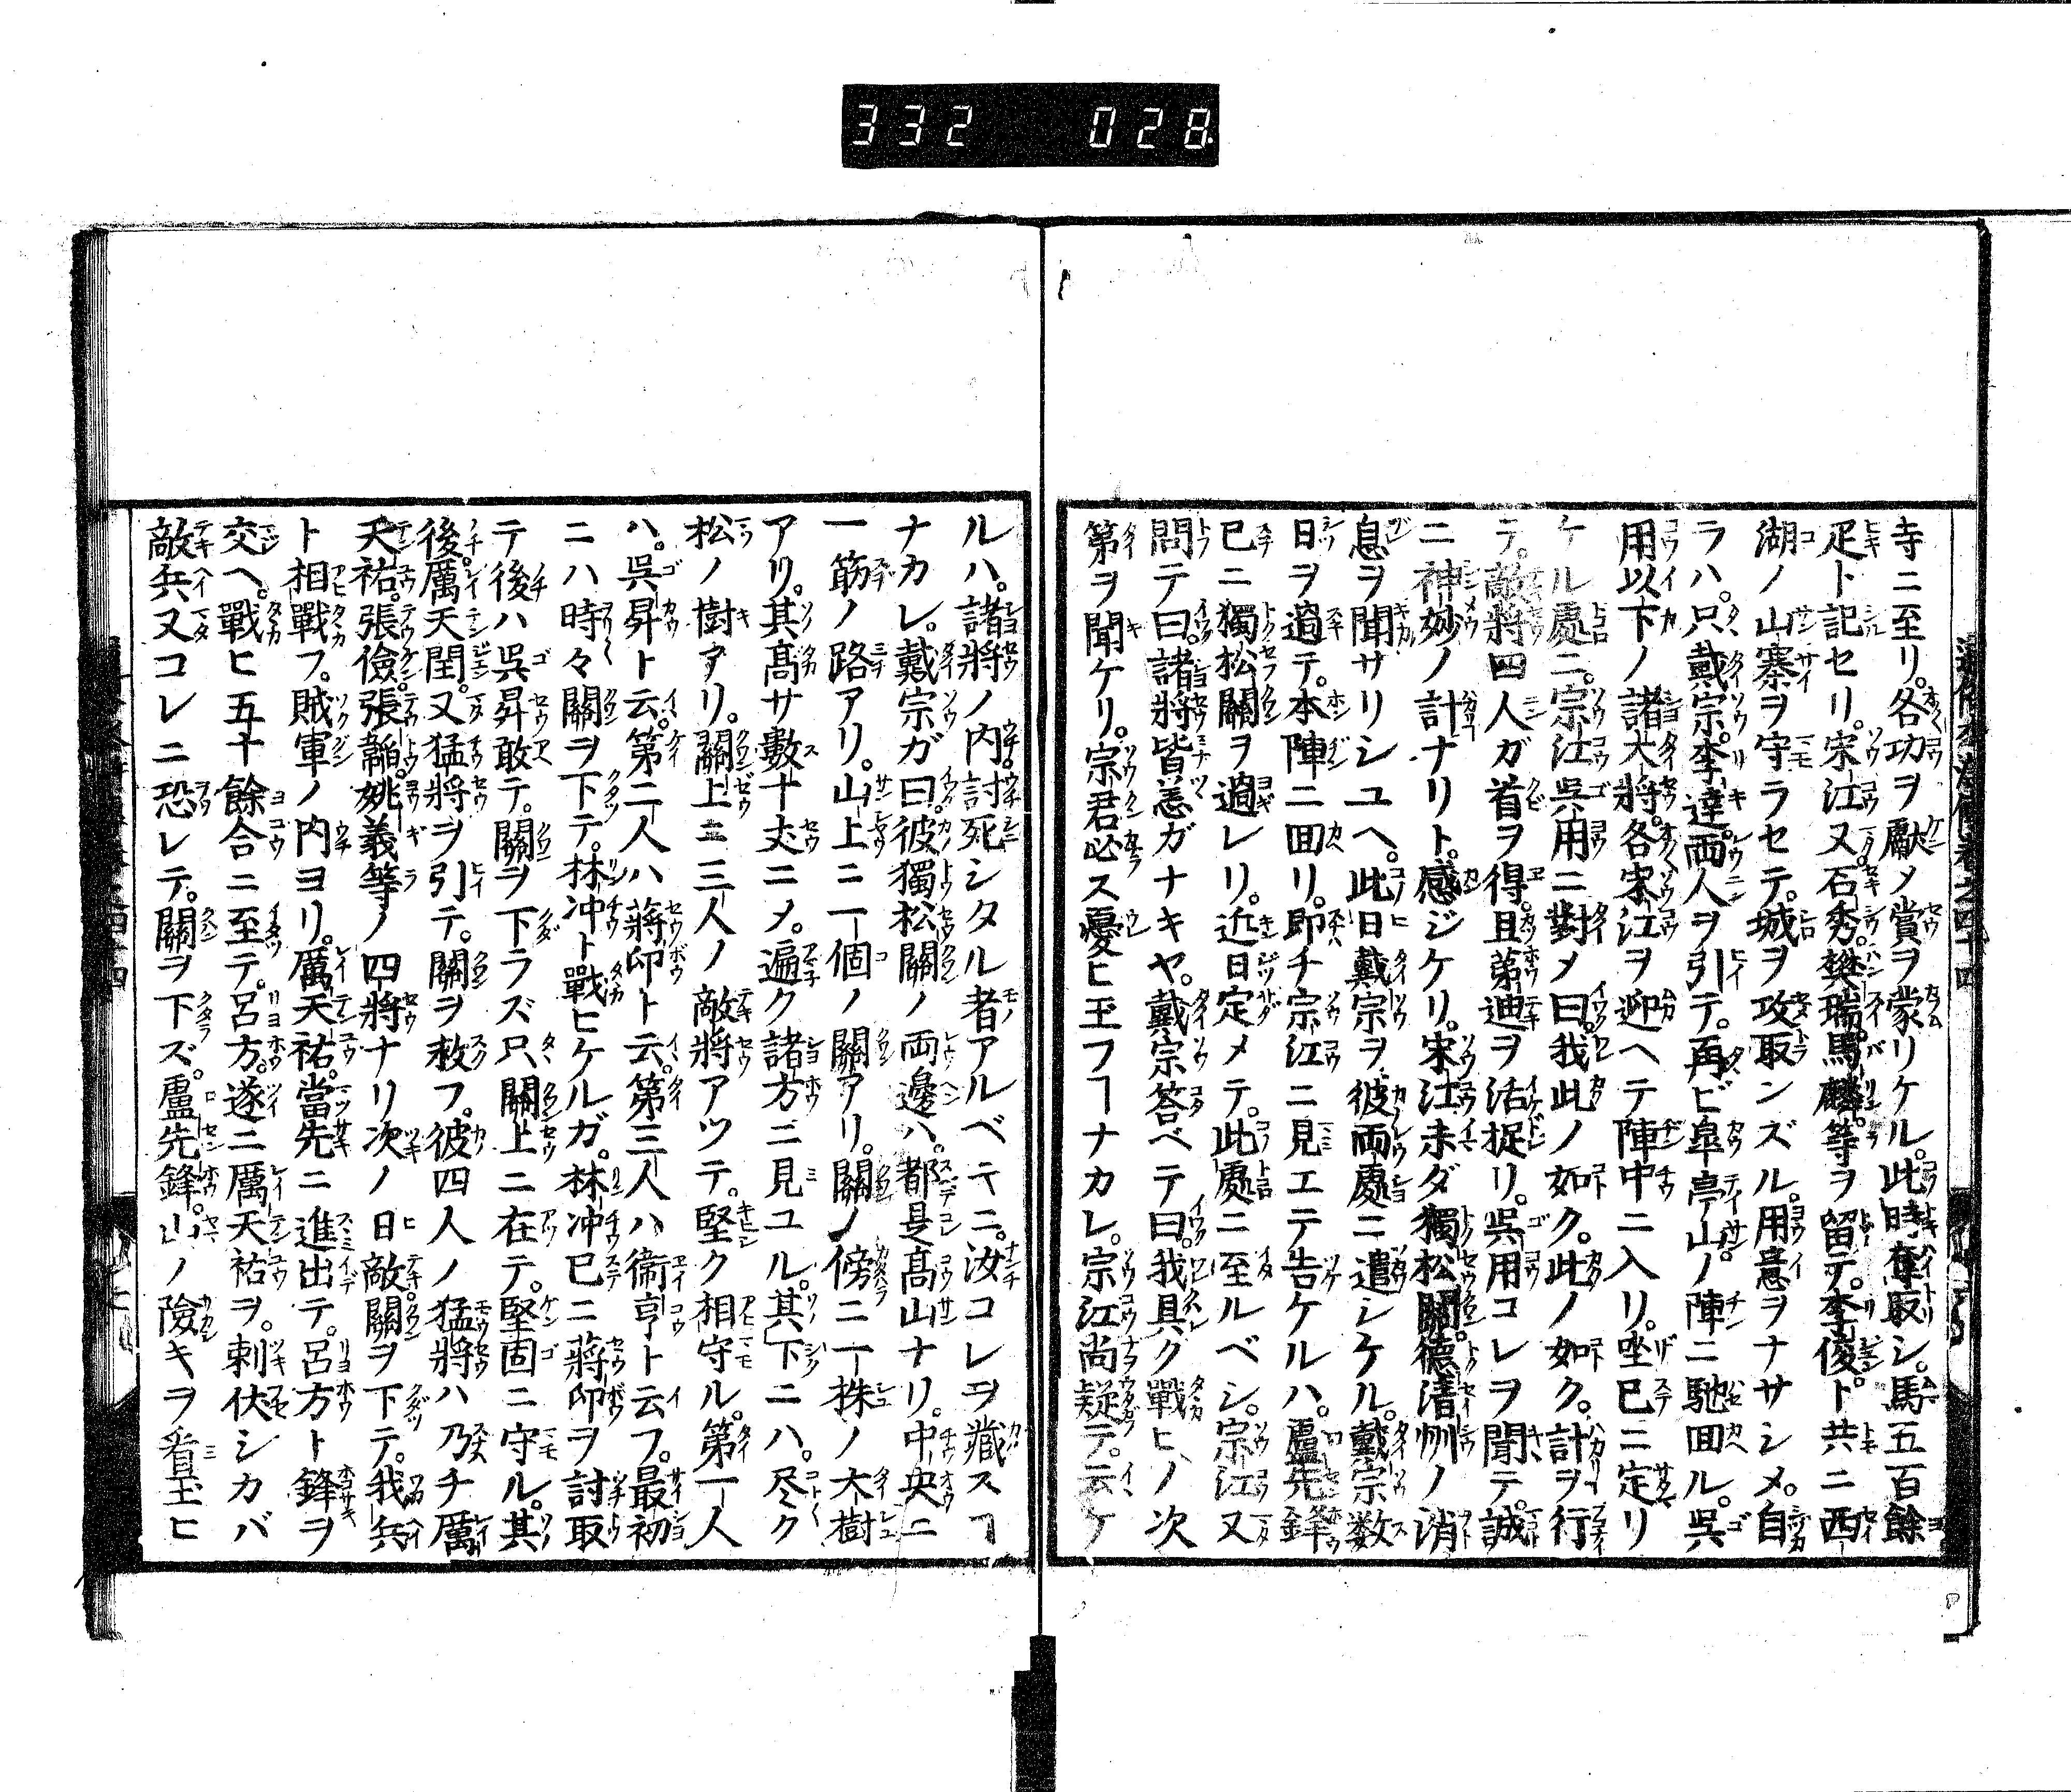 332 028
寺ニ至リ。各功ヲ獻メ賞ヲ蒙リケル。此時奪取シ。馬五百餘
疋ト記セリ。宋江又。石秀。樊瑞。馬麟。等ヲ留テ。李俊ト共ニ西
湖ノ山寨ヲ守ラセテ。城ヲ攻取ンズル。用意ヲナサシメ。自
ラハ。只戴宗。李逵。兩人ヲ引テ。再ビ皐亭山。ノ陣ニ馳回ル。呉
用以下ノ諸大將。各宋江ヲ迎ヘテ陣中ニ入リ。坐已ニ定リ
ケル處ニ。宗江呉用ニ對メ曰。我此ノ如ク。此ノ如ク。計ヲ行
テ。敵將四人ガ首ヲ得。且茀迪ヲ活捉リ。呉用コレヲ聞テ。誠
ニ神妙ノ計ナリト。感ジケリ。宋江未ダ獨松關。德清州ノ消
息ヲ聞サリシユヘ。此日戴宗ヲ彼両處ニ遣シケル。戴宗数
日ヲ過テ。本陣ニ回リ。即チ宗江ニ見エテ告ケルハ。盧先鋒
已ニ獨松關ヲ過レリ。近日定メテ。此處ニ至ルベシ。宗江又
問テ曰。諸將皆恙ガナキヤ。戴宗答ベテ曰。我具ク戰ヒノ次
第ヲ聞ケリ。宗君必ス憂ヒ玉フヿナカレ。宗江尚疑テ。云ケ
ルハ。諸將ノ内。討死シタル者アルベキニ。汝コレヲ藏スヿ
ナカレ。戴宗ガ曰。彼獨松關ノ両邊ハ。都是髙山ナリ。中央ニ
一筋ノ路アリ。山上ニ一個ノ關アリ。關ノ傍ニ一株ノ大樹
アリ。其髙サ數十丈ニメ。遍ク諸方ニ見ユル。其下ニハ。尽ク
松ノ樹アリ。關上ニ三人ノ敵將アツテ。堅ク相守ル。第一人
ハ。呉昇ト云。第二人ハ蒋印ト云。第三人ハ衞亨ト云フ。最初
ニハ時々關ヲ下テ。林冲ト戰ヒケルガ。林冲已ニ蒋印ヲ討取
テ後ハ呉昇敢テ。關ヲ下ラズ只關上ニ在テ。堅固ニ守ル。其
後。厲天閏。又猛將ヲ引テ。關ヲ救フ。彼四人ノ猛將ハ乃チ厲
天祐。張儉。張韜。姚義等ノ四將ナリ次ノ日敵。關ヲ下テ。我兵
ト相戰フ。賊軍ノ内ヨリ。厲天祐。當先ニ進出テ。呂方ト鋒ヲ
交ヘ。戰ヒ五十餘合ニ至テ。呂方。遂ニ厲天祐ヲ。刺伏シカバ
敵兵又コレニ恐レテ。關ヲ下ズ。盧先鋒。山ノ險キヲ看玉ヒ